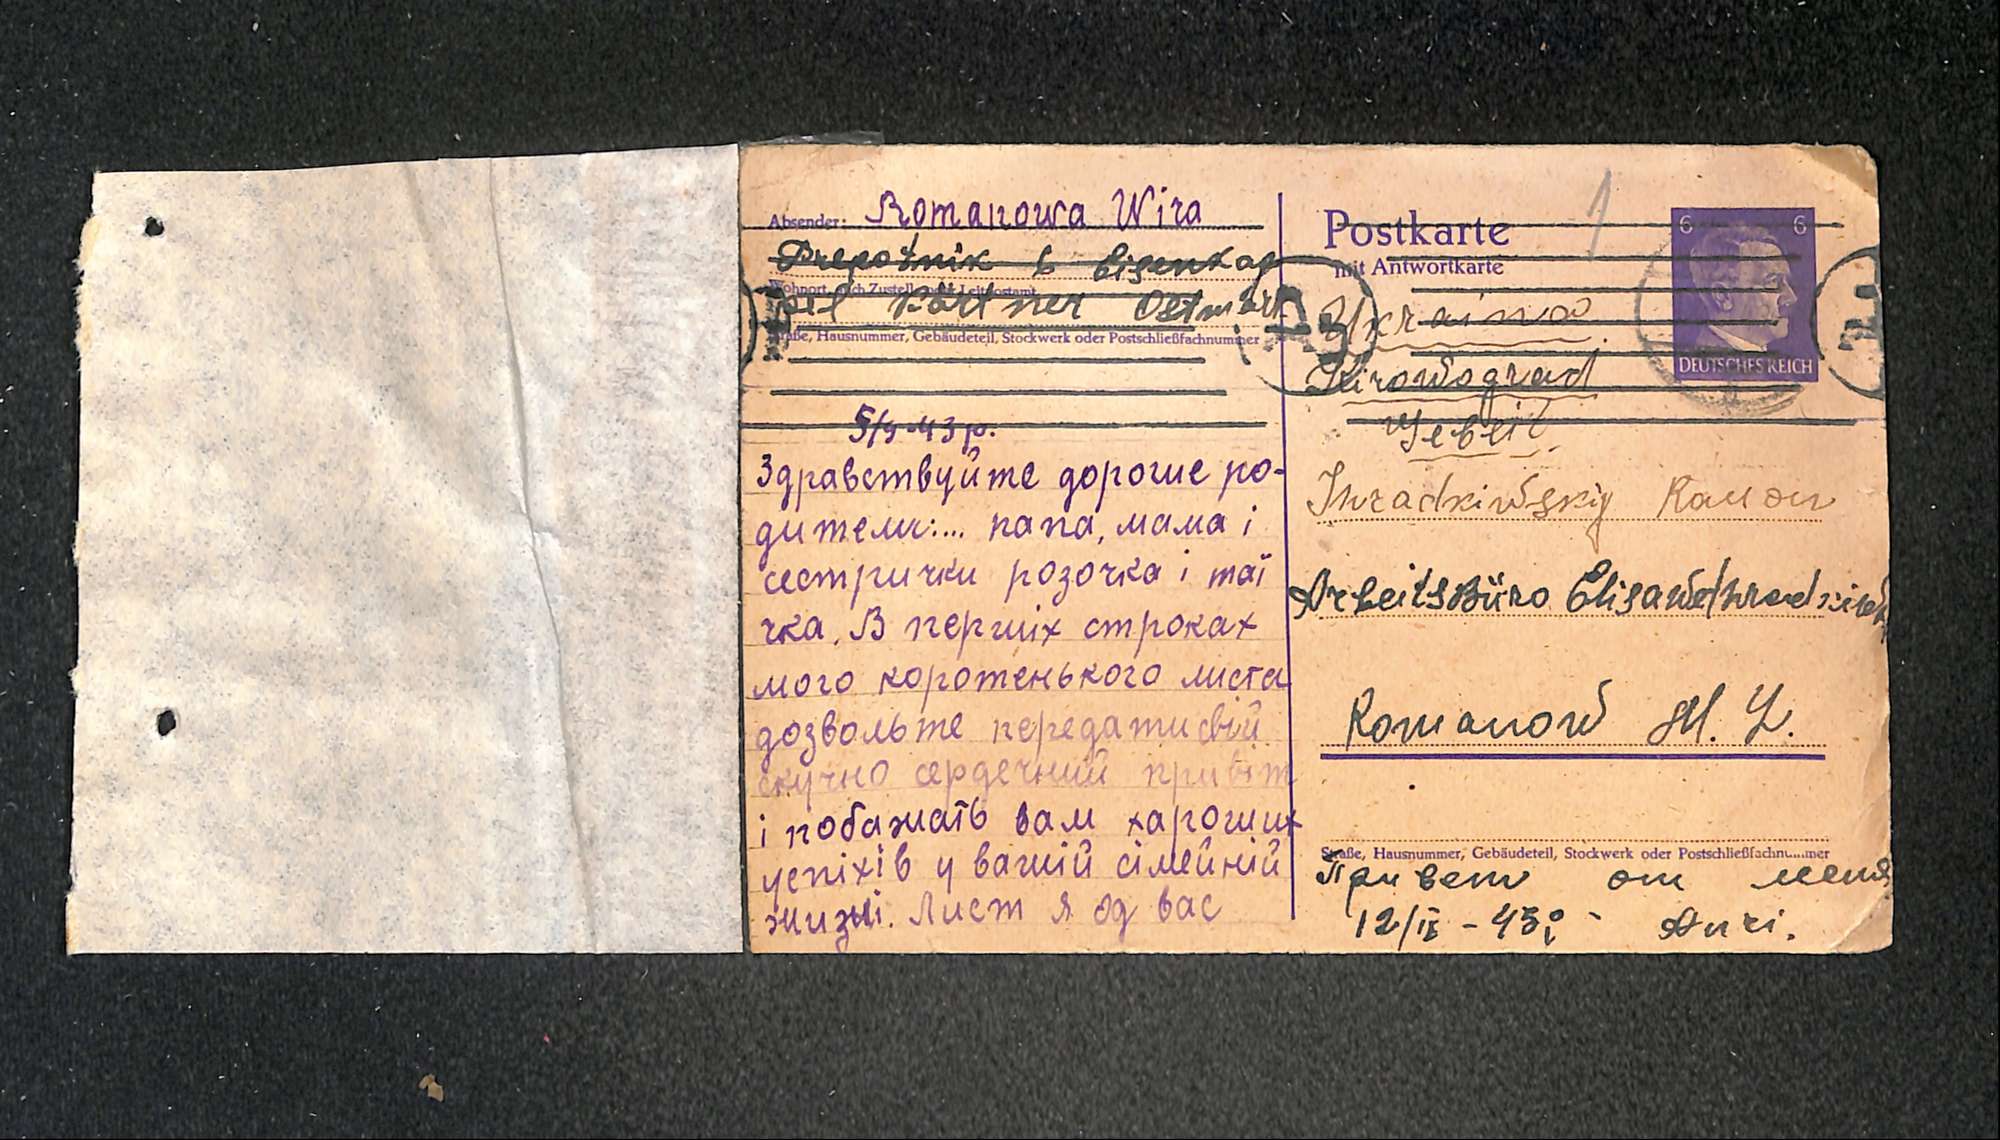 Absender: Romanowa Wira
Prepotnik b Eisenkap
Wohnort, auch Zustell- oder Leitpostamt
pel Kärtner Ostmark
Straße, Hausnummer, Gebäudeteil, Stockwerk oder Postschließfachnummer
5/9 43 р.
Здравствуйте дорогие ро-
дители:... папа, мама і
сестрички розочка і таї
чка. В перших строках
мого коротенького листа
дозвольте передати свій
скучно сердечний привіт
і побажать вам хароших
успіхів у вашій сімейній
жизні. Лист я од вас
Postkarte
mit Antwortkarte
6 6
DEUTSCHES REICH
1
Ukraina
Kirowograd
Gebeit
Rauon
ArbeitsBüro
Romanow M. L.
Straße, Hausnummer, Gebäudeteil, Stockwerk oder Postschließfachnummer
Привет от меня
12/IX - 43